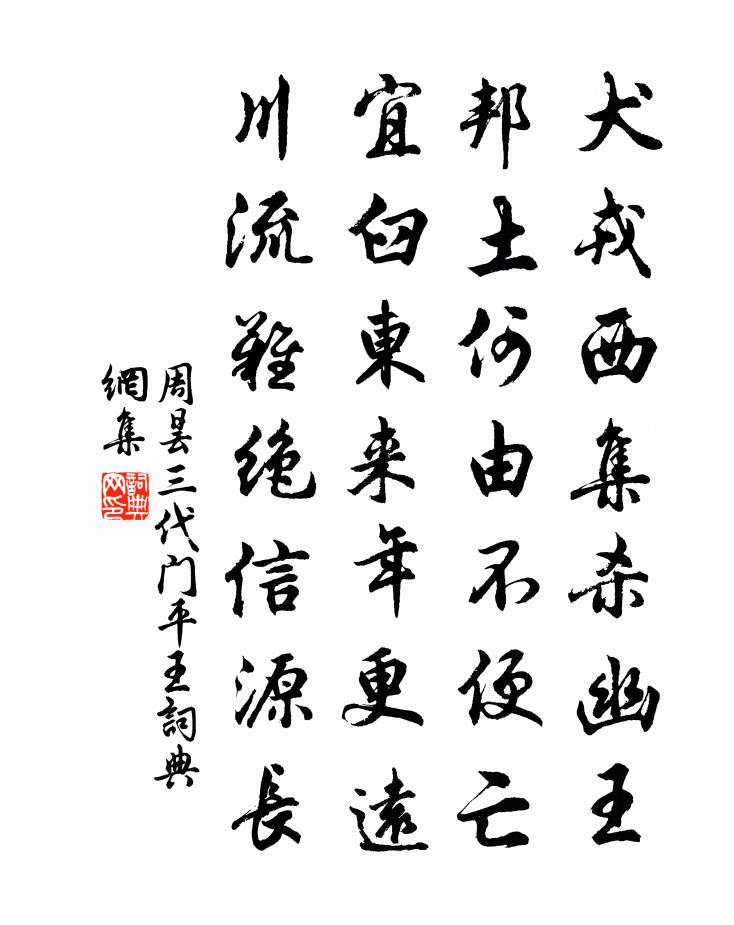 犬戎西集杀幽王
邦土何由不便亡
宜臼東来年更遠
川流難绝信源長
周昙三代门平王詞典
網集
詞典网印